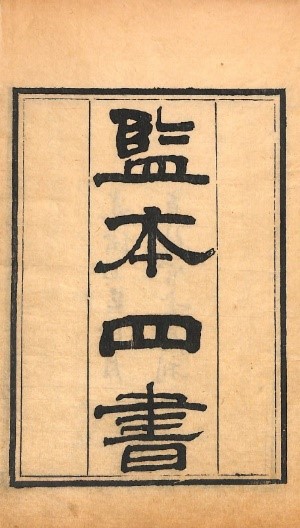 監本四書